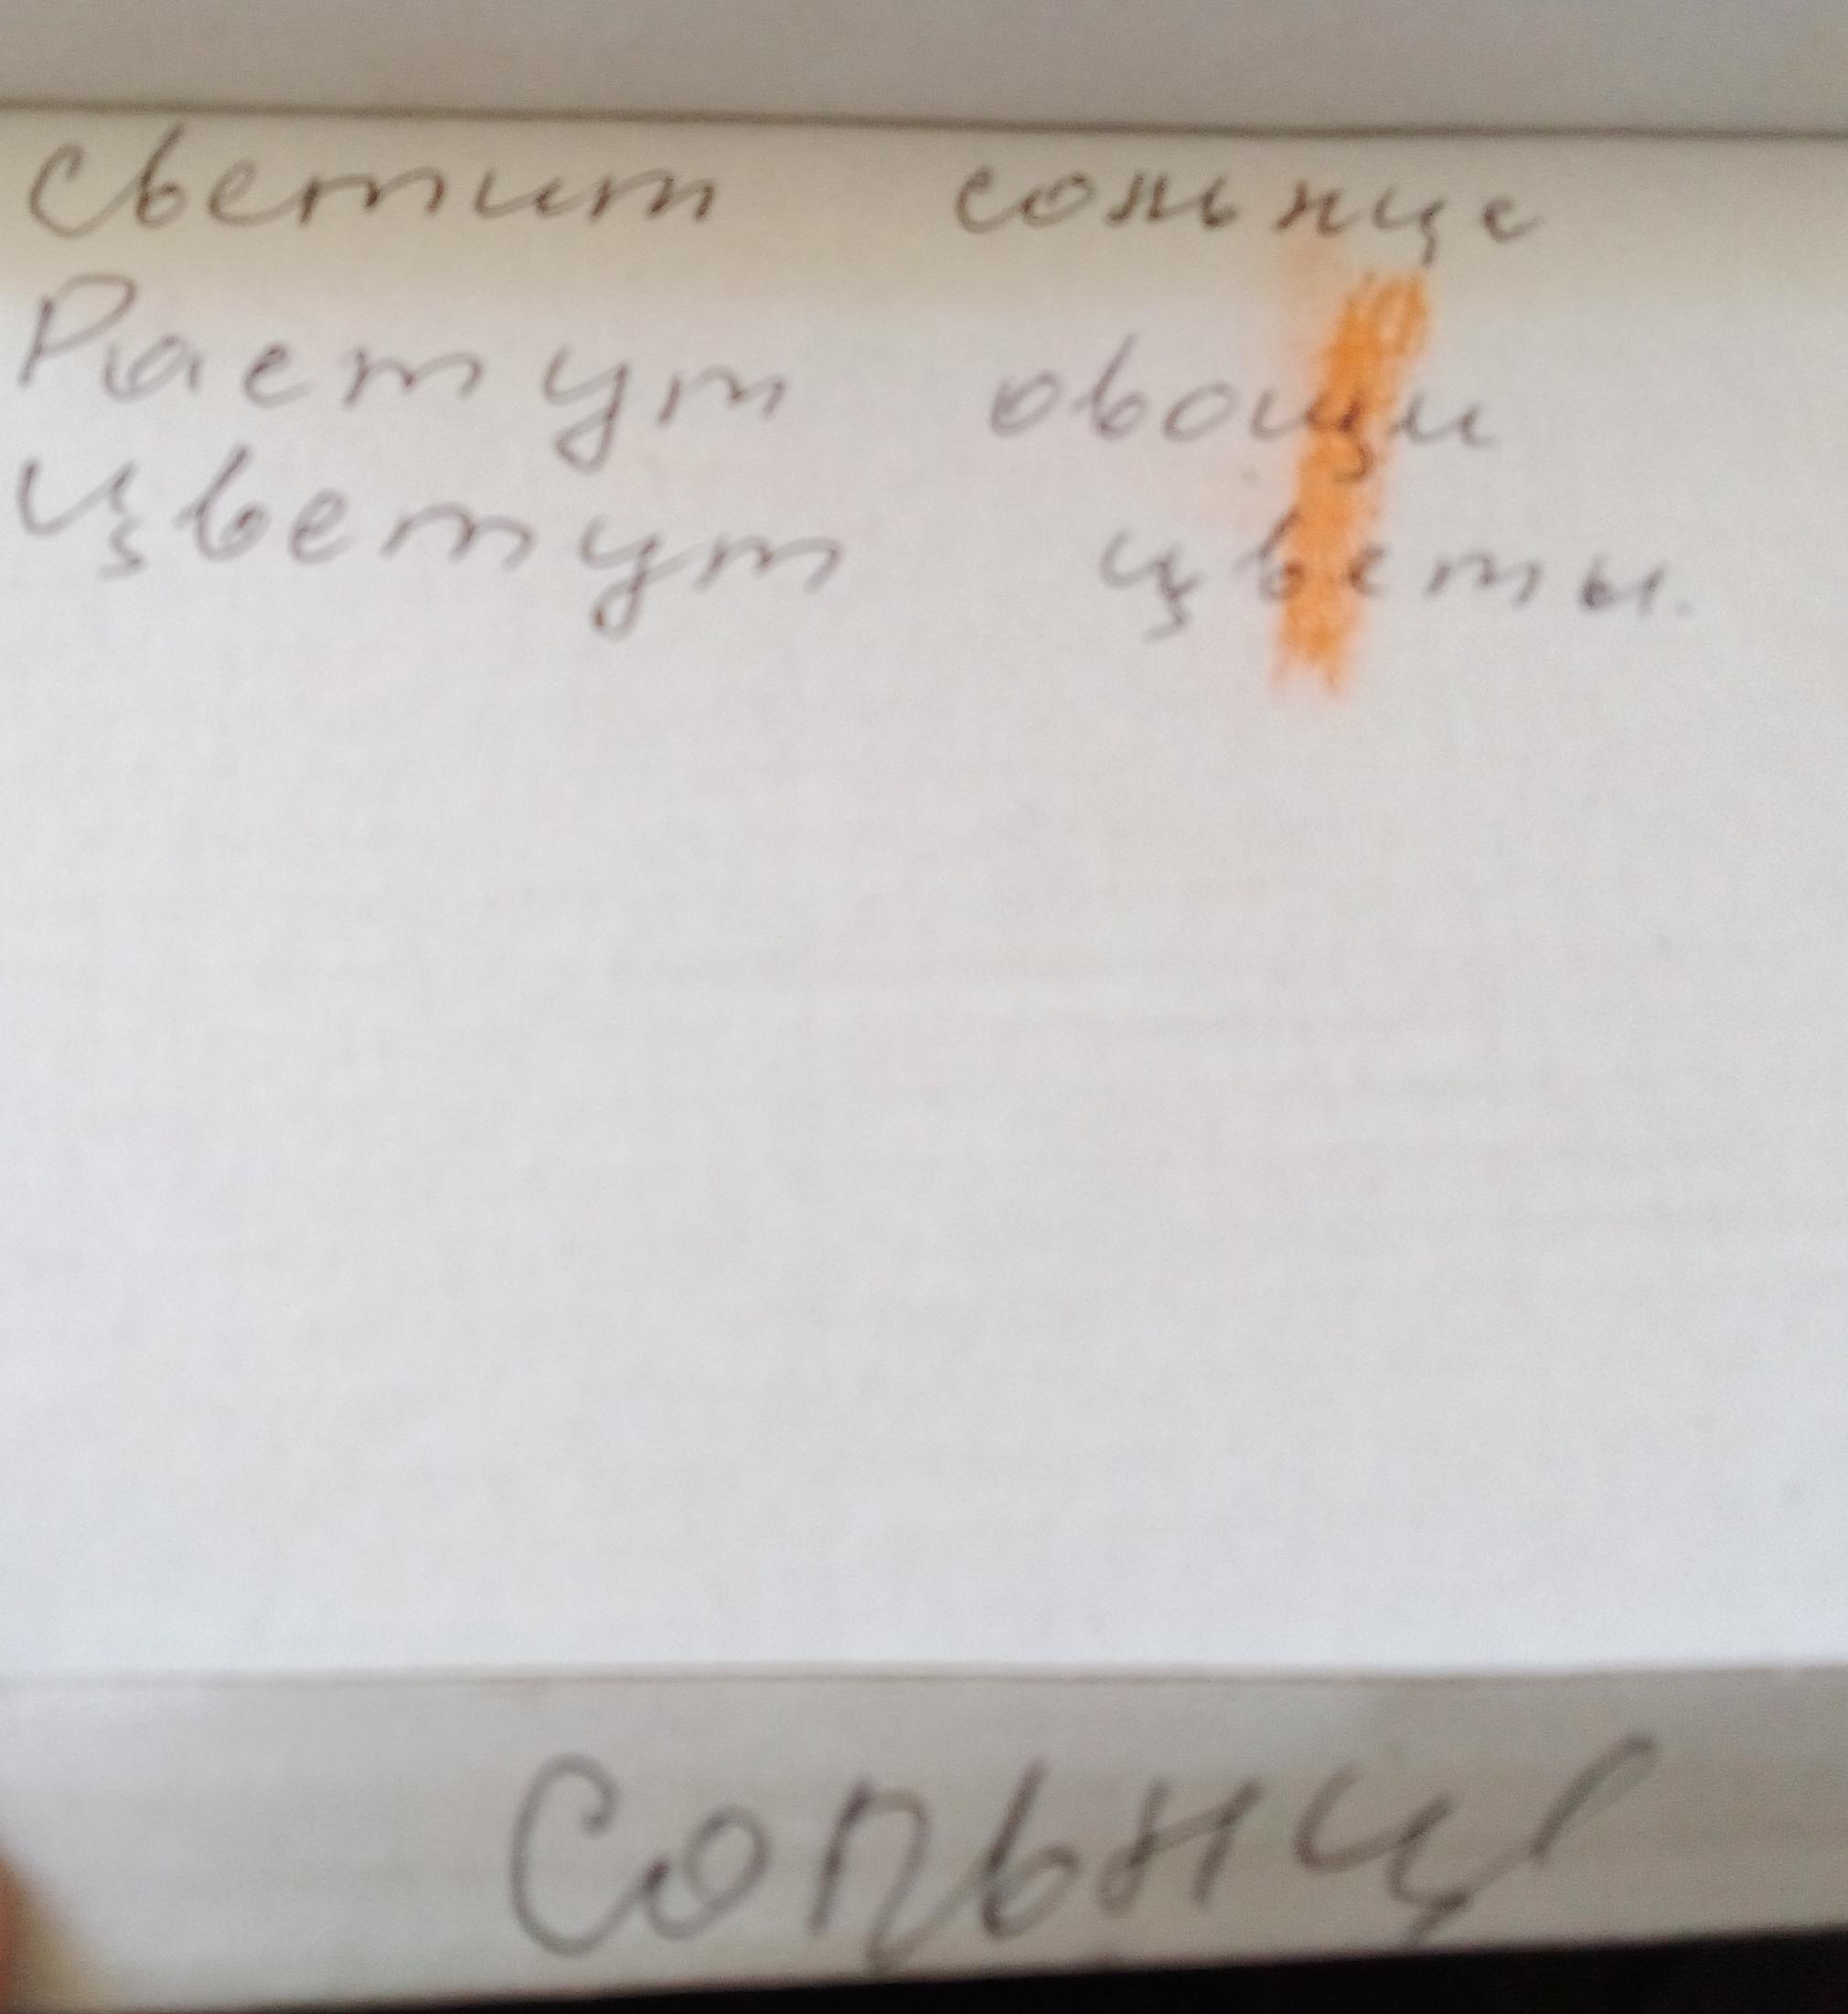 Светит сольнце
Растут овощи
Цветут цветы.
Сольнц